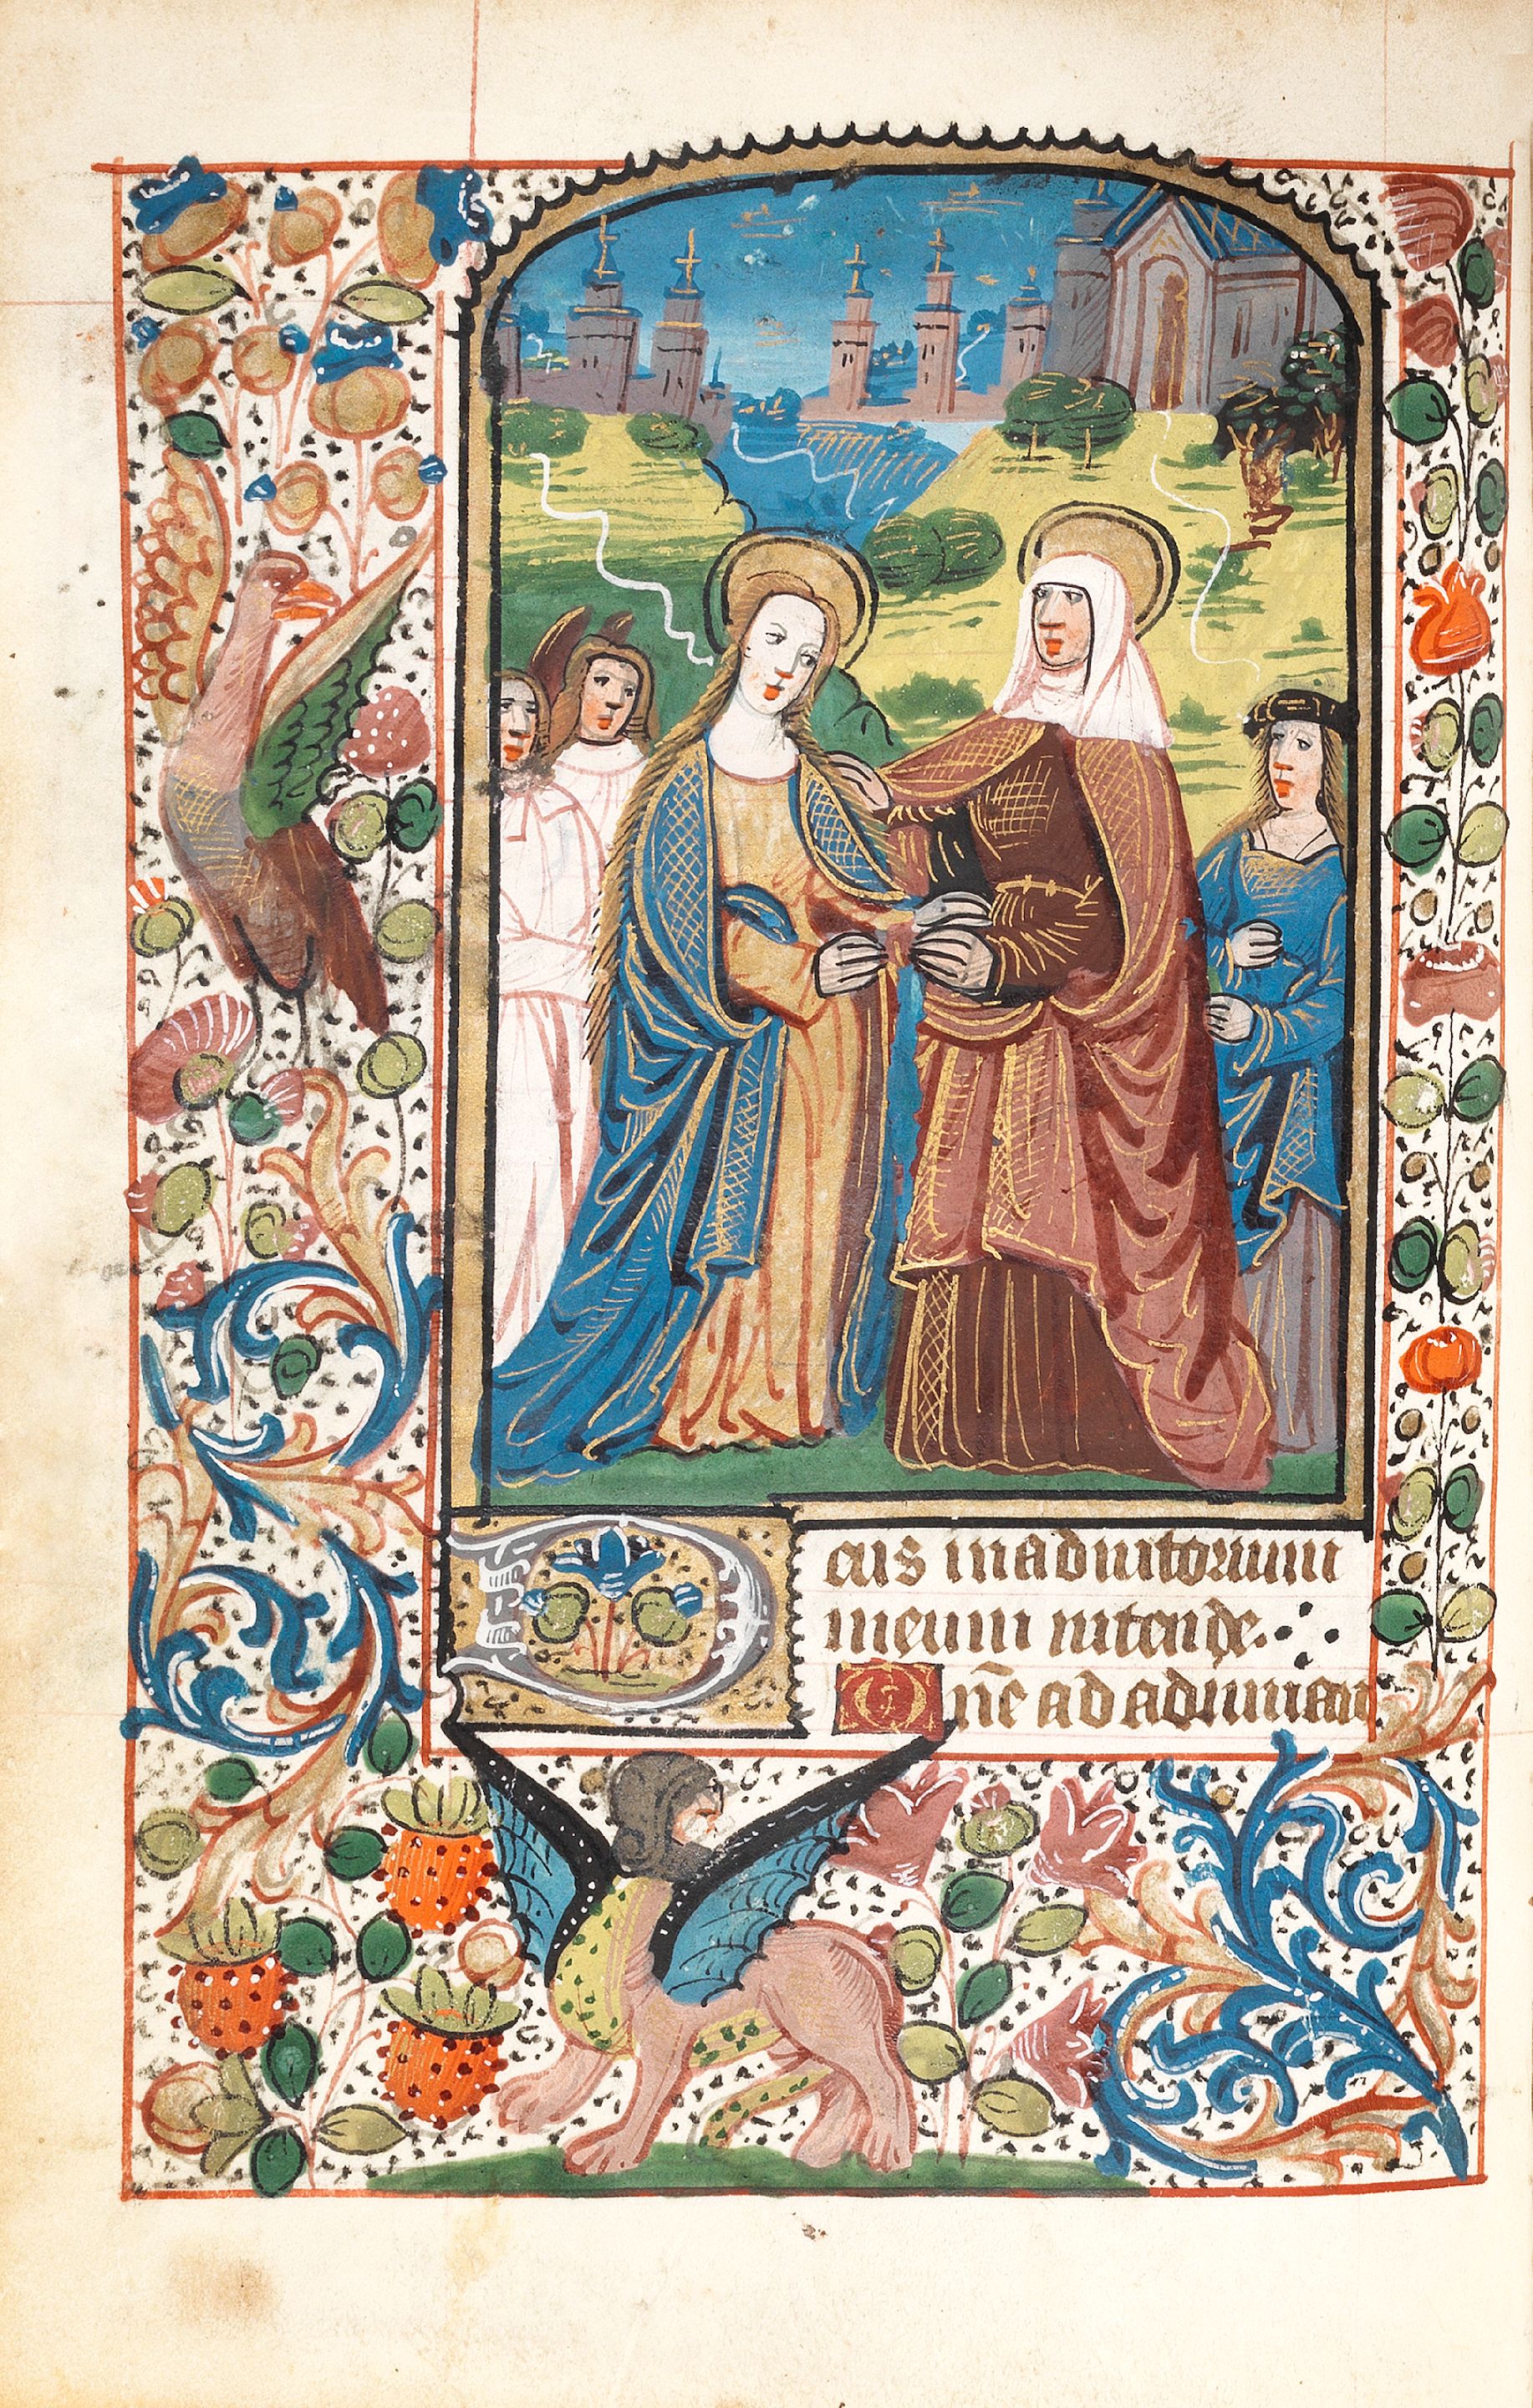 Deus in adiutorium
meum intende.
Dñe ad adiuuan